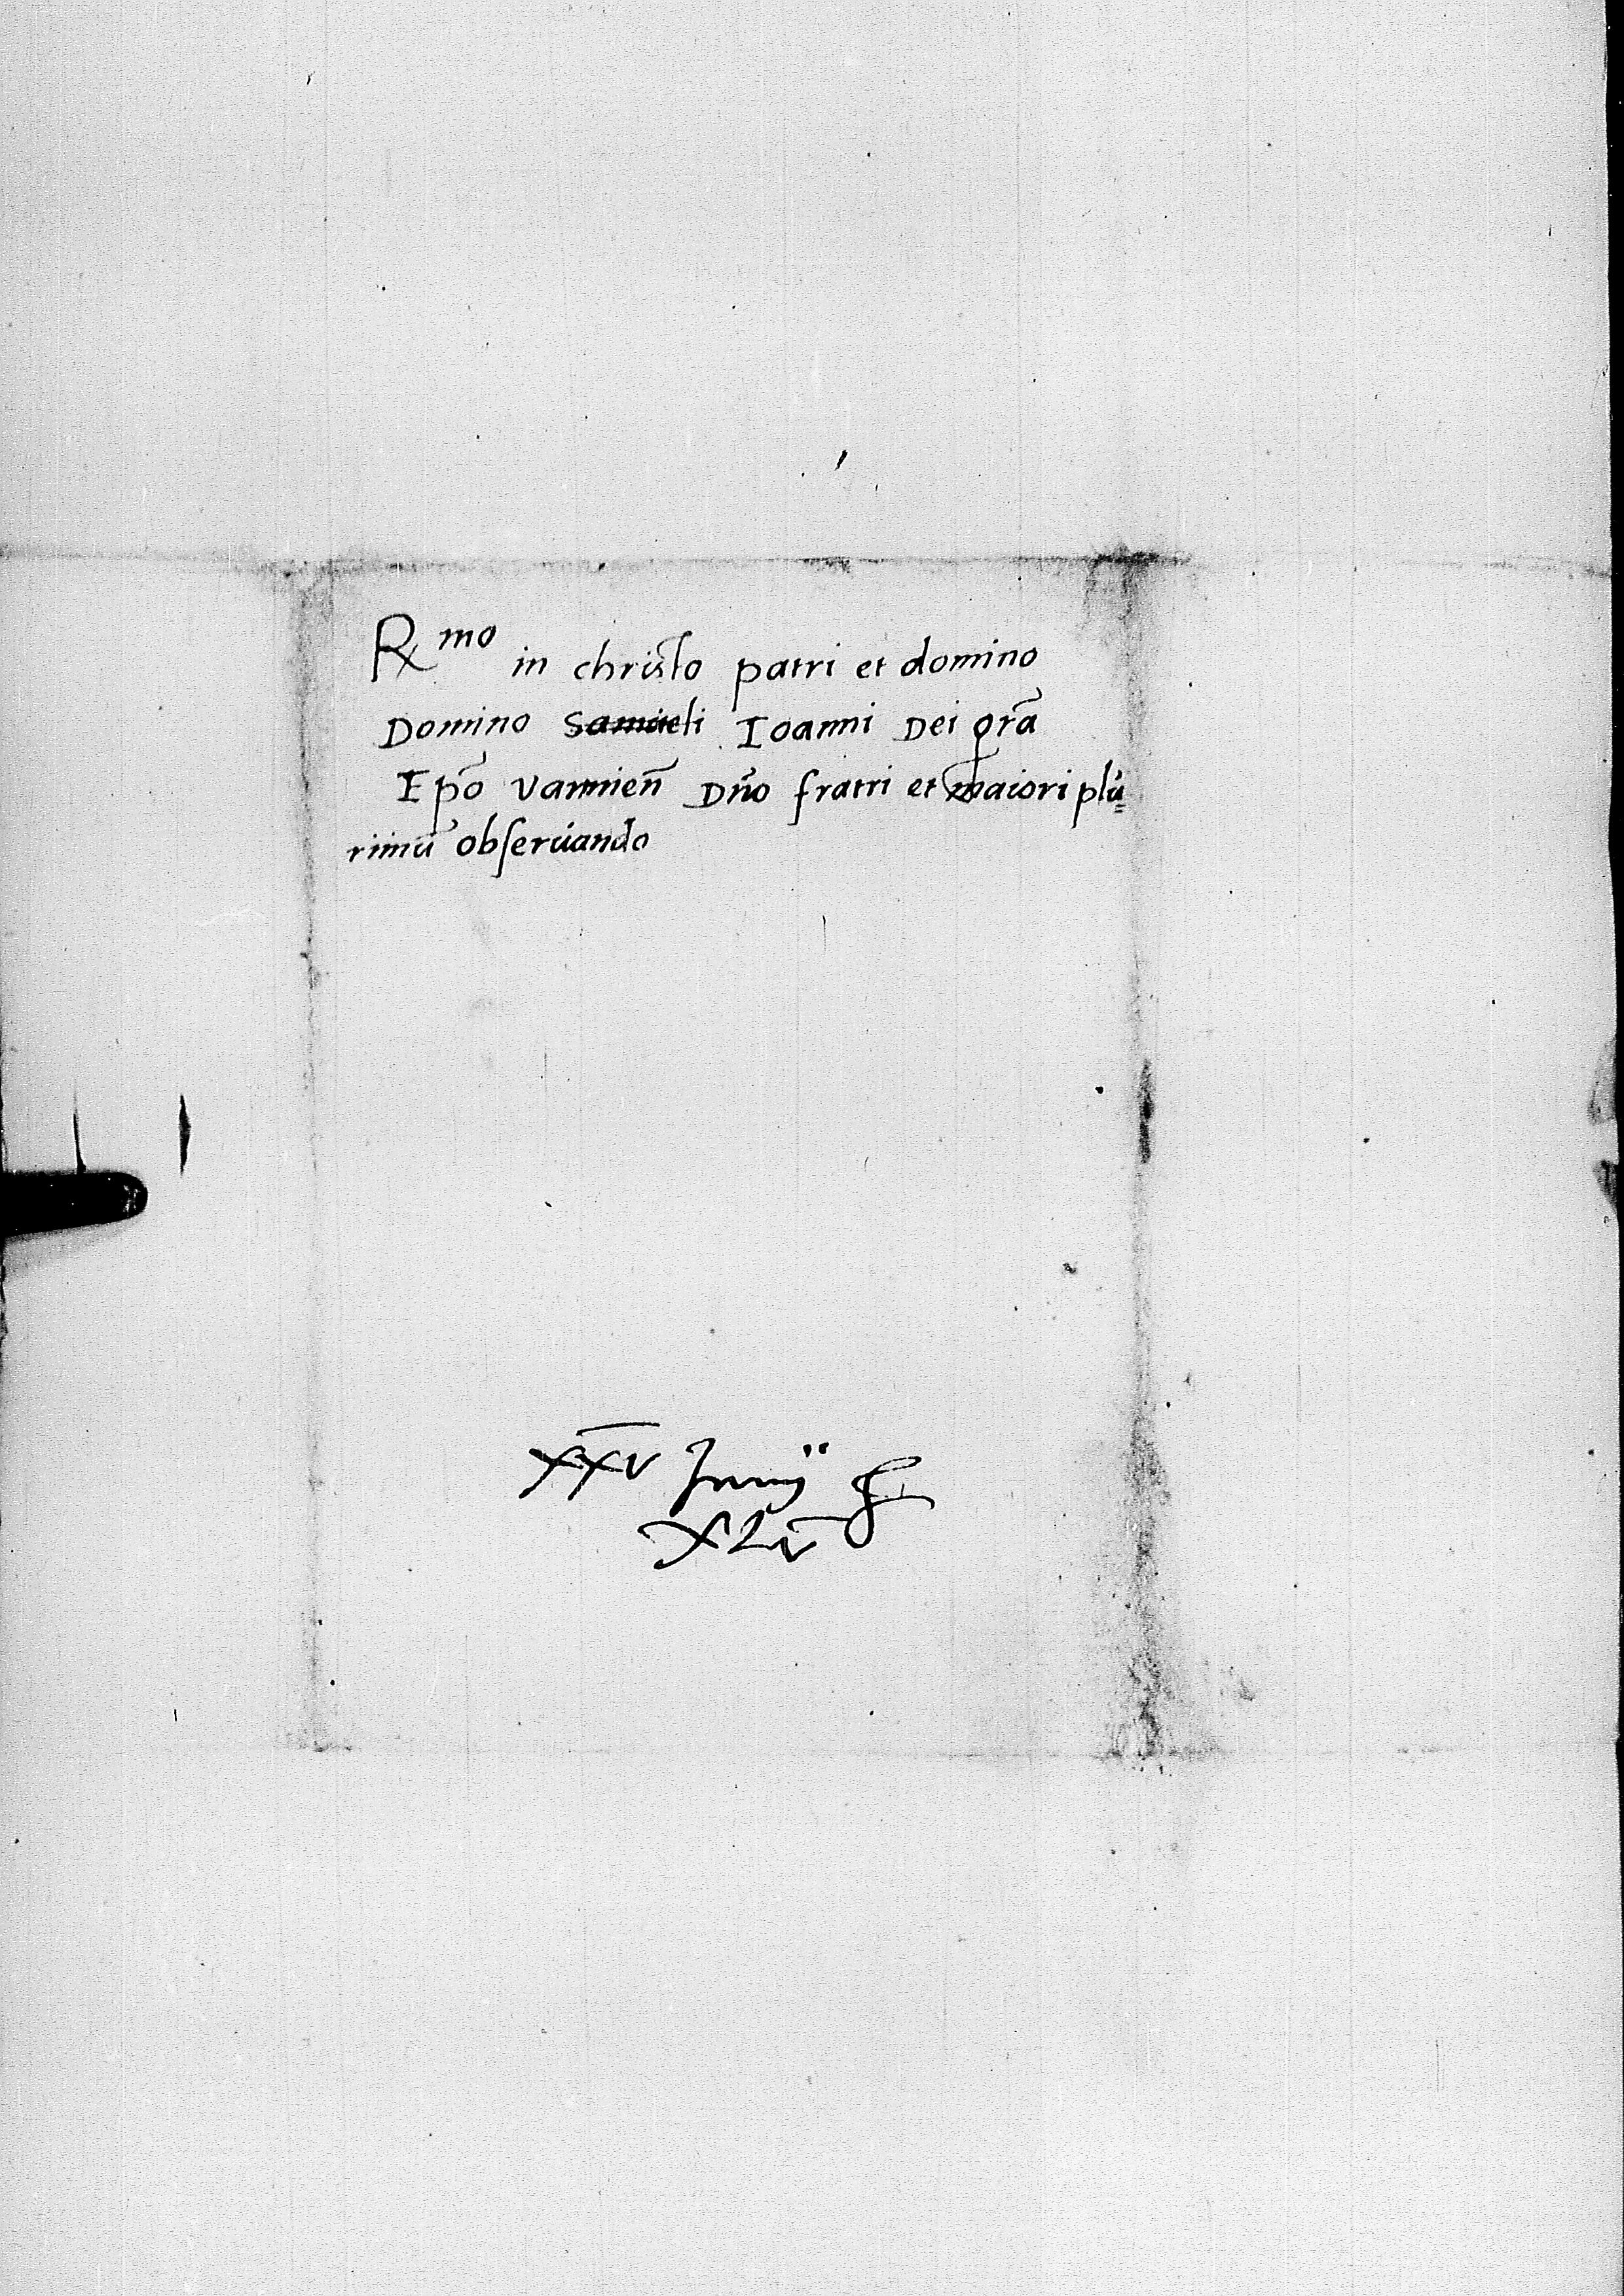 Rmo in christo patri et domino
Domino Samueli Ioanni Dei gra̅
Ep̅o varmien̅ Dn̅o fratri et maiori plu=
rimu̅ obseruando
XXV Junij
XLV